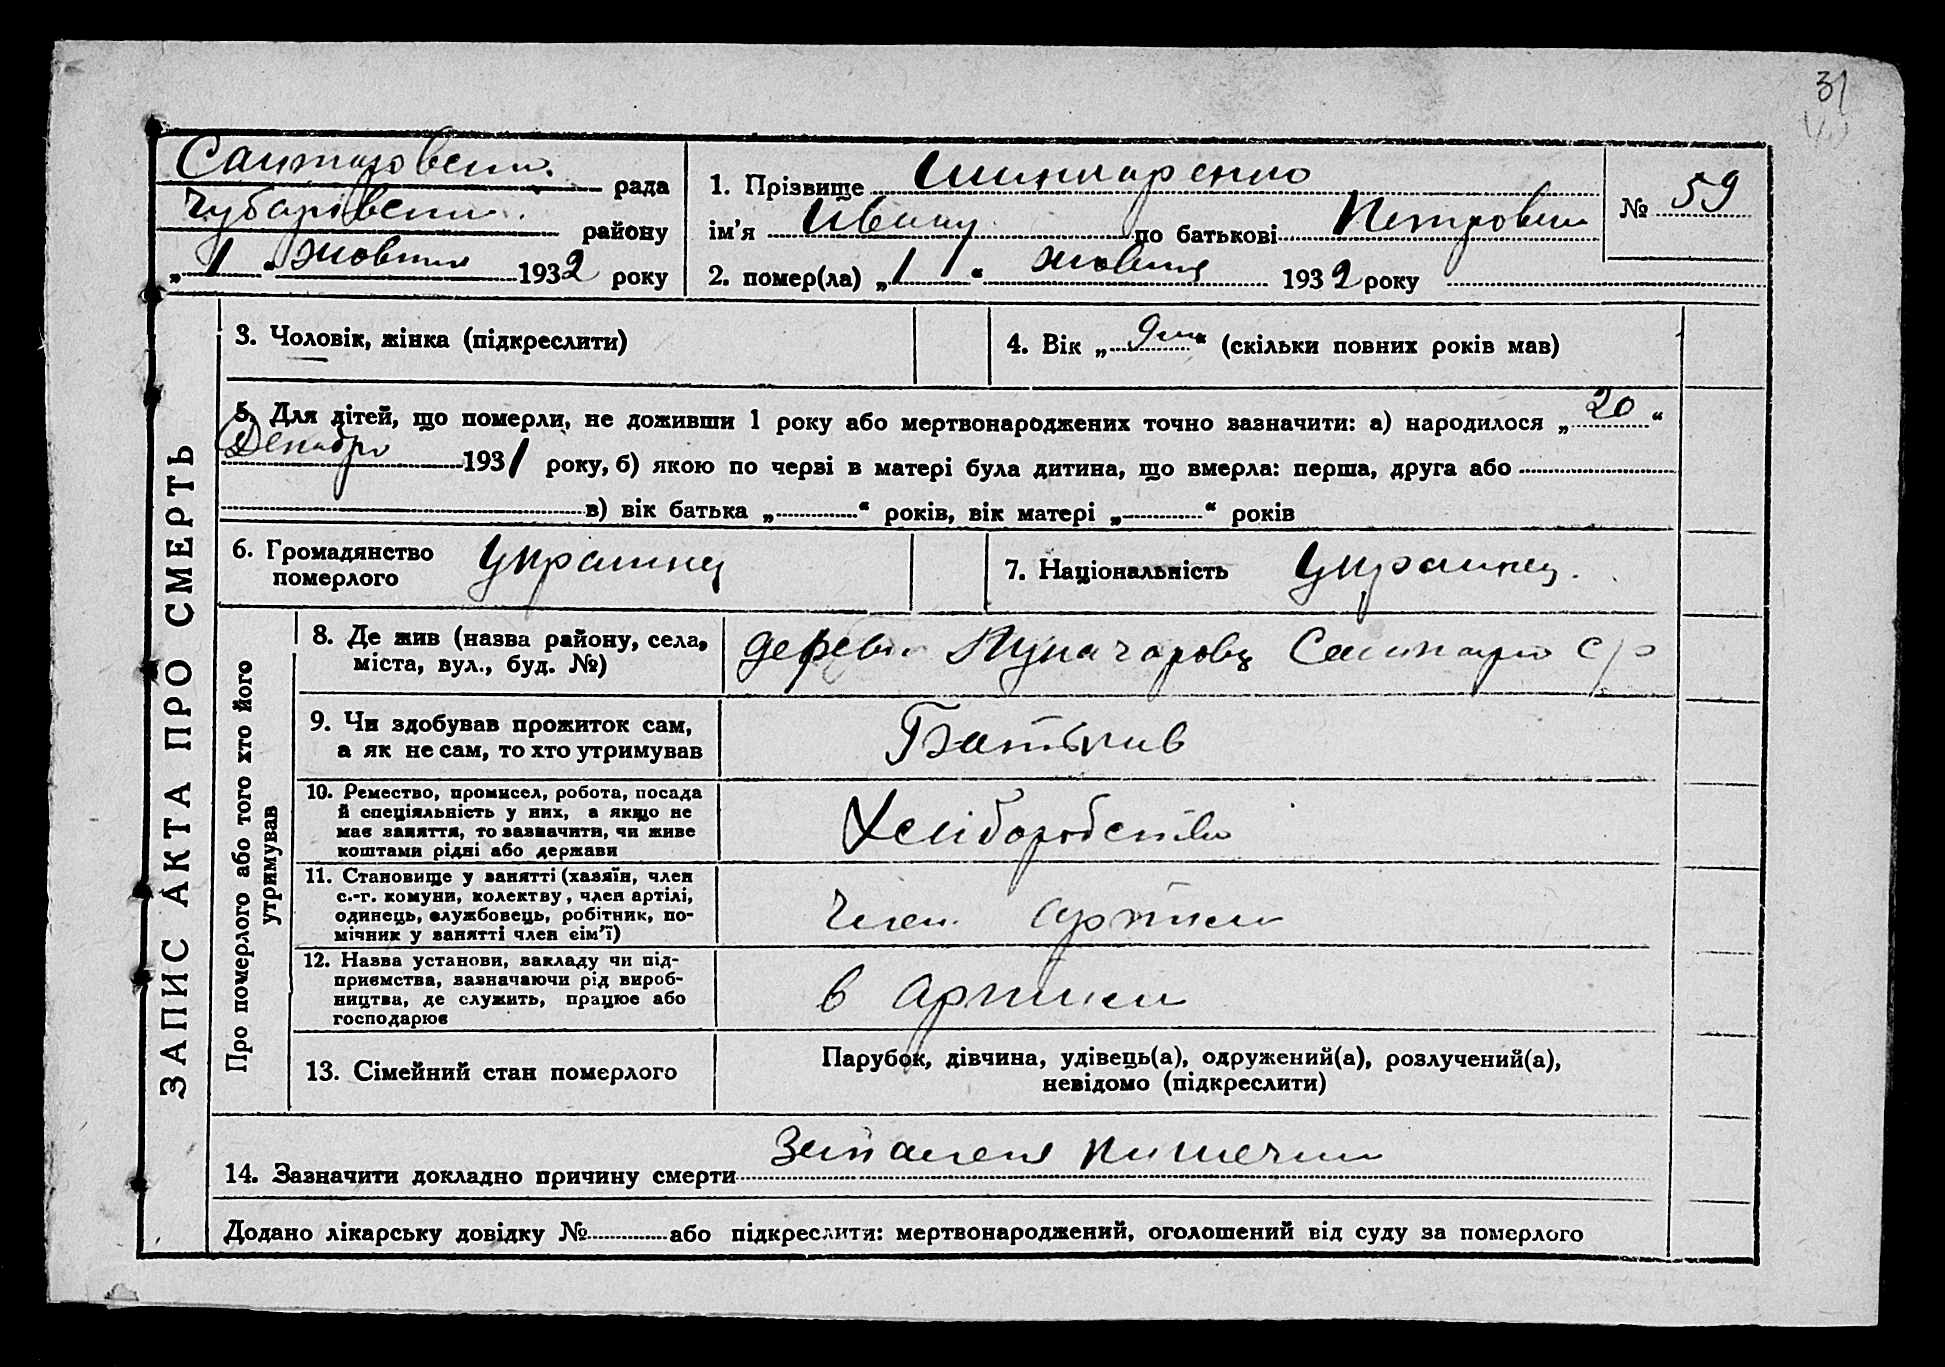 31
Рада
Чубарівськ. району
„1“ жовтня 1932 року
1. Прізвище Шинкаренко
№ 59
ім’я Ивану по батькові Петрович
2. помер(ла) „1“ жовтня 1932 року
ЗАПИС АКТА ПРО СМЕРТЬ
3. Чоловік, жінка (підкреслити)
4. Вік „9 м“ (скільки повних років мав)
5. Для дітей, що померли, не доживши 1 року або мертвонароджених точно зазначити: а) народилося „20“
Декабря 1931 року, б) якою по черві в матері була дитина, що вмерла: перша, друга або
в) вік батька „ “ років, вік матері „ “ років
6. Громадянство
померлого
украинец
7. Національність украинец.
Про померлого або того хто його
утримував
8. Де жив (назва району, села,
міста, вул., буд. №)
дерев Луначаровц с/р
9. Чи здобував прожиток сам,
а як не сам, то хто утримував
Батькив
10. Ремество, промисел, робота, посада
й спеціяльність у них, а якщо не
має заняття, то зазначити, чи живе
коштами рідні або держави
Хлібородство
11. Становище у занятті (хазяїн, член
с.-г. комуни, колектву, член артілі,
одинець, службовець, робітник, по-
мічник у занятті член сім’ї)
Член артили
12. Назва установи, закладу чи під-
приємства, зазначаючи рід вироб-
ництва, де служить, працює або
господарює
в артили
13. Сімейний стан померлого
Парубок, дівчина, удівець(а), одружений(а), розлучений(а),
невідомо (підкреслити)
14. Зазначити докладно причину смерти Запаленя кишечни
Додано лікарську довідку № або підкреслити: мертвонароджений, оголошений від суду за померлого